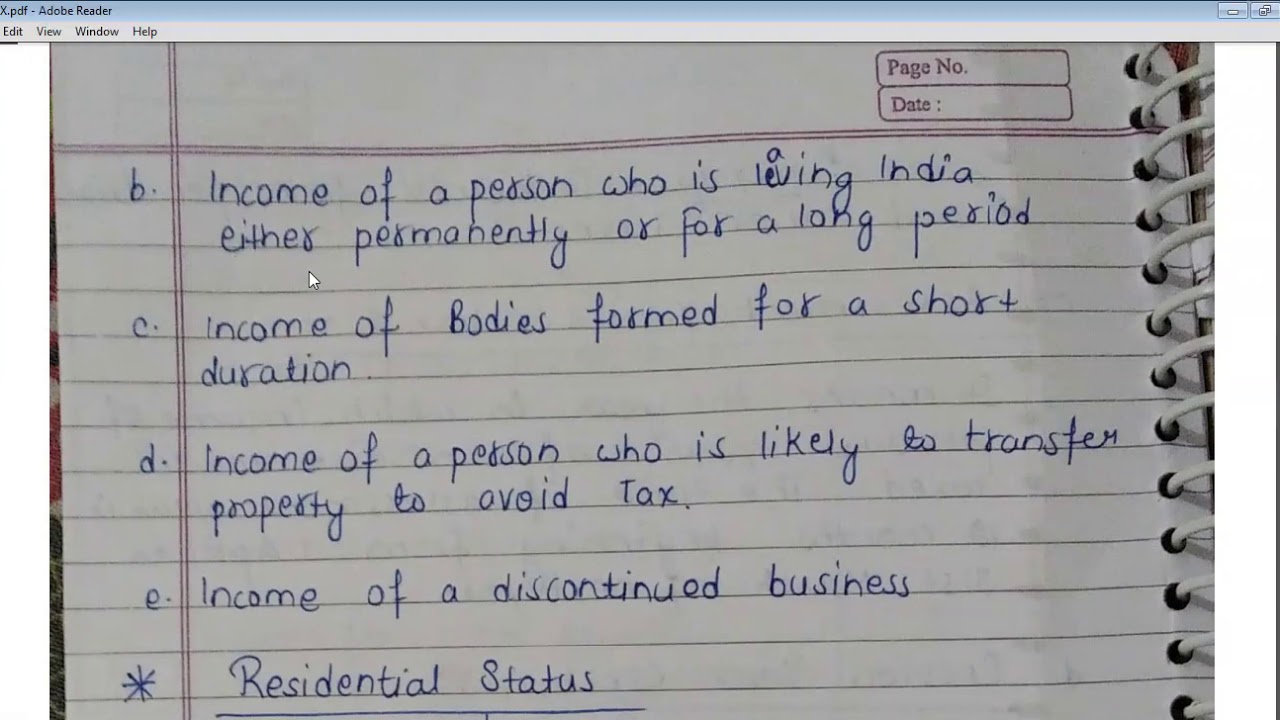 X.pdf - Adobe Reader
Edit View Window Help
Page No.
Date :
b. Income of a person who is leaving India
either permanently or for a long period
c. Income of Bodies formed for a short
duration.
d. Income of a person who is likely to transfer
property to avoid Tax.
e. Income of a discontinued business
* Residential Status